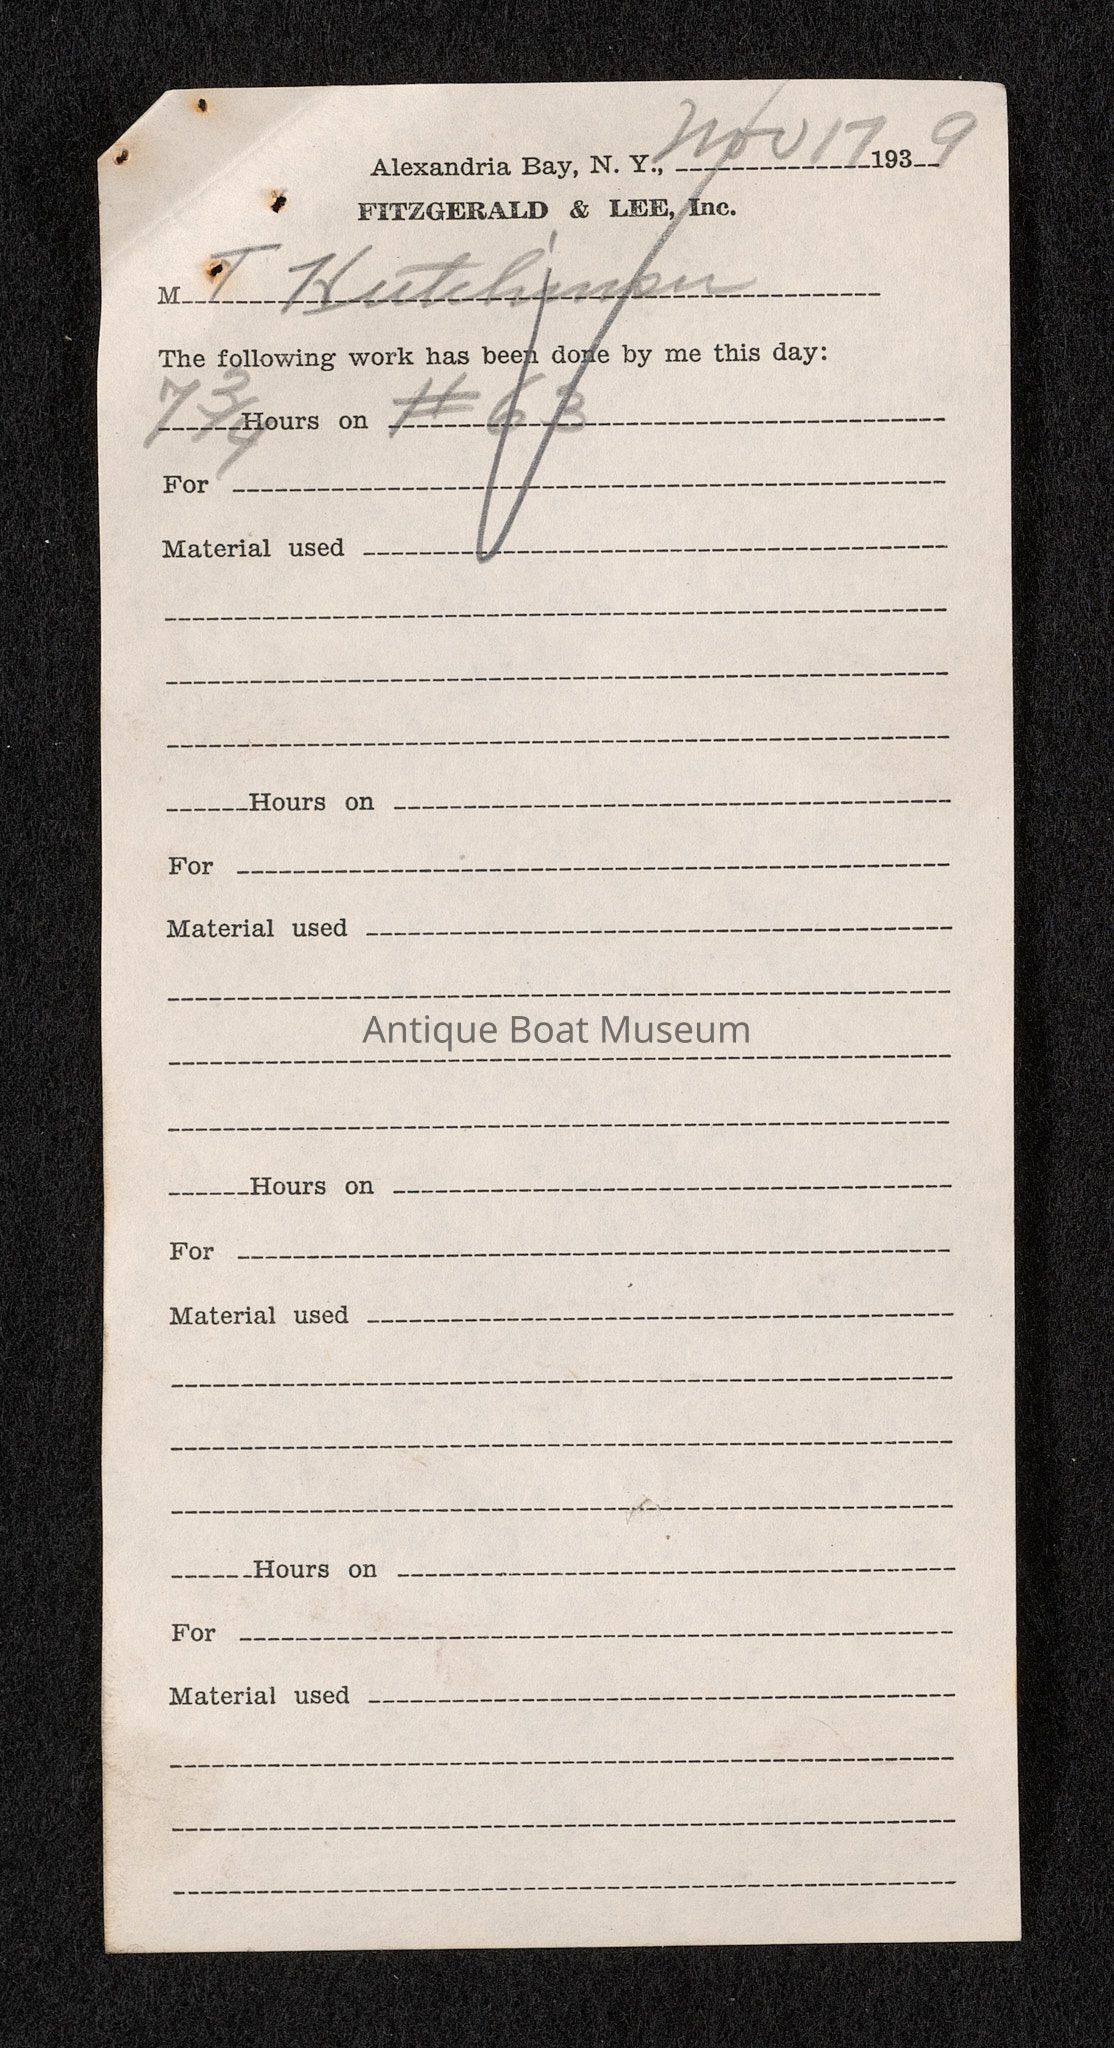 Alexandria Bay, N. Y., Nov 17 1939
FITZGERALD & LEE, Inc.
M T Hutchinson
The following work has been done by me this day:
7 3/4 Hours on #63
For
Material used
Hours on
For
Material used
Antique Boat Museum
Hours on
For
Material used
Hours on
For
Material used